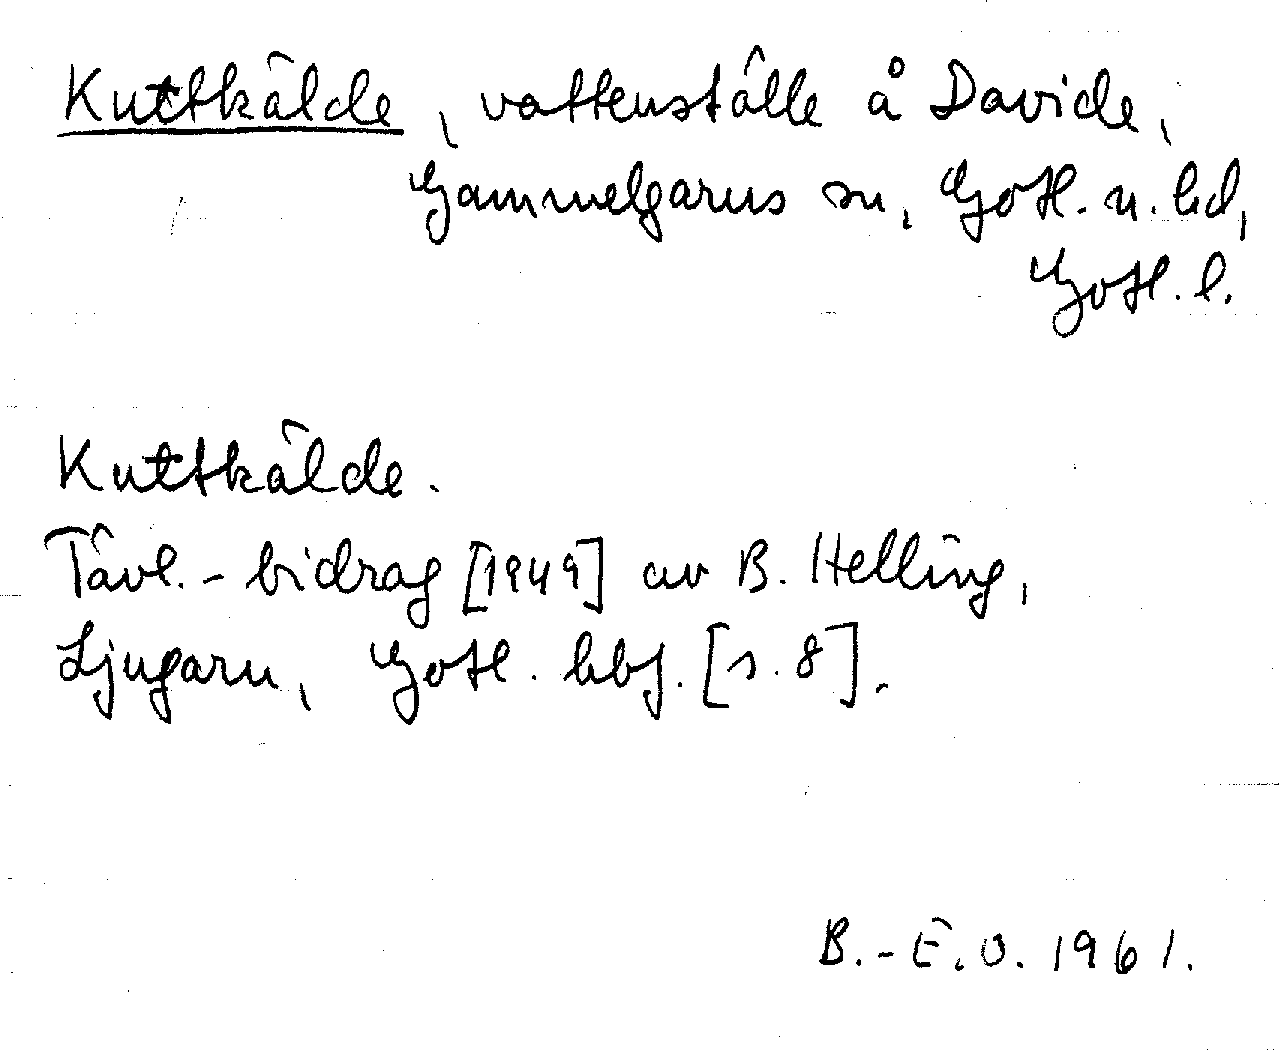 Kuttkälde, vattenställe å Davide,
Gammelgarns sn, Gotl. n. hd,
Gotl. l.
Kuttkälde.
Tävl.-bidrag [1949] av B. Helling,
Ljugarn, Gotl. hbf. [s. 8].
B.-E. O. 1961.